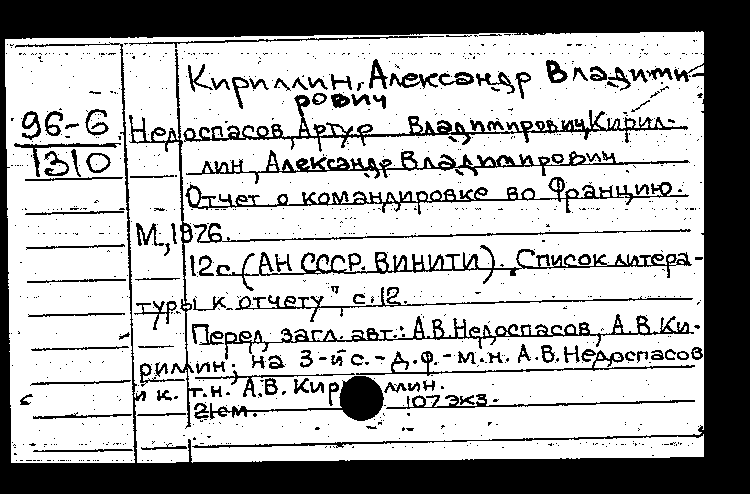 Кириллин, Александр Владими-
рович
96-6 Недоспасов, Артур Владимирович, Кирил-
1310 лин, Александр Владимирович
Отчет о командировке во Францию.
М., 1976.
12с. (АН СССР. ВИНИТИ). „Список литера-
туры к отчету", с. 12.
Перед загл. авт.: А.В. Недоспасов, А.В. Ки-
риллин; на 3-й с. - д.ф.-м.н. А.В. Недоспасов
и к. т.н. А.В. Кириллин.
21см. 107 экз.